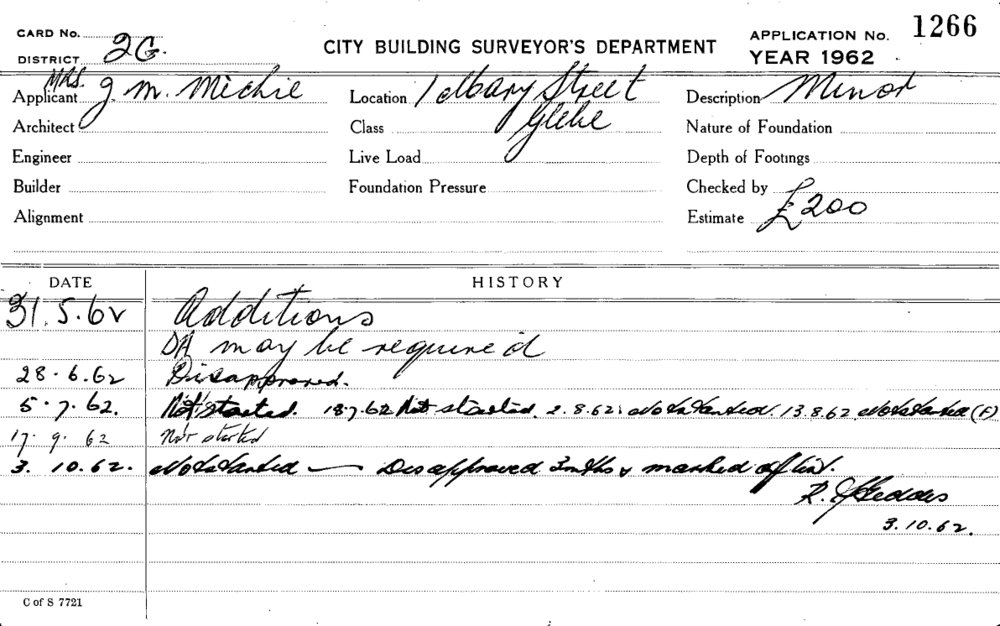 CARD No.
DISTRICT 2G.
CITY BUILDING SURVEYOR'S DEPARTMENT
APPLICATION No. 1266
YEAR 1962
Applicant MRS. J. M. Michie
Location 1 Albany Street
Description Minor
Architect
Class Glebe
Nature of Foundation
Engineer
Live Load
Depth of Footings
Builder
Foundation Pressure
Checked by
Alignment
Estimate £200
DATE HISTORY
31.5.62 Additions
DA may be required
28.6.62 Disapproved.
5.7.62. Not started. 18.7.62 Not started. 2.8.62. Not started. 13.8.62 Not started (F)
17.9.62 Not started
3.10.62. Not started — Disapproved 3 mths & marked off list.
R. Geddes
3.10.62.
C of S 7721